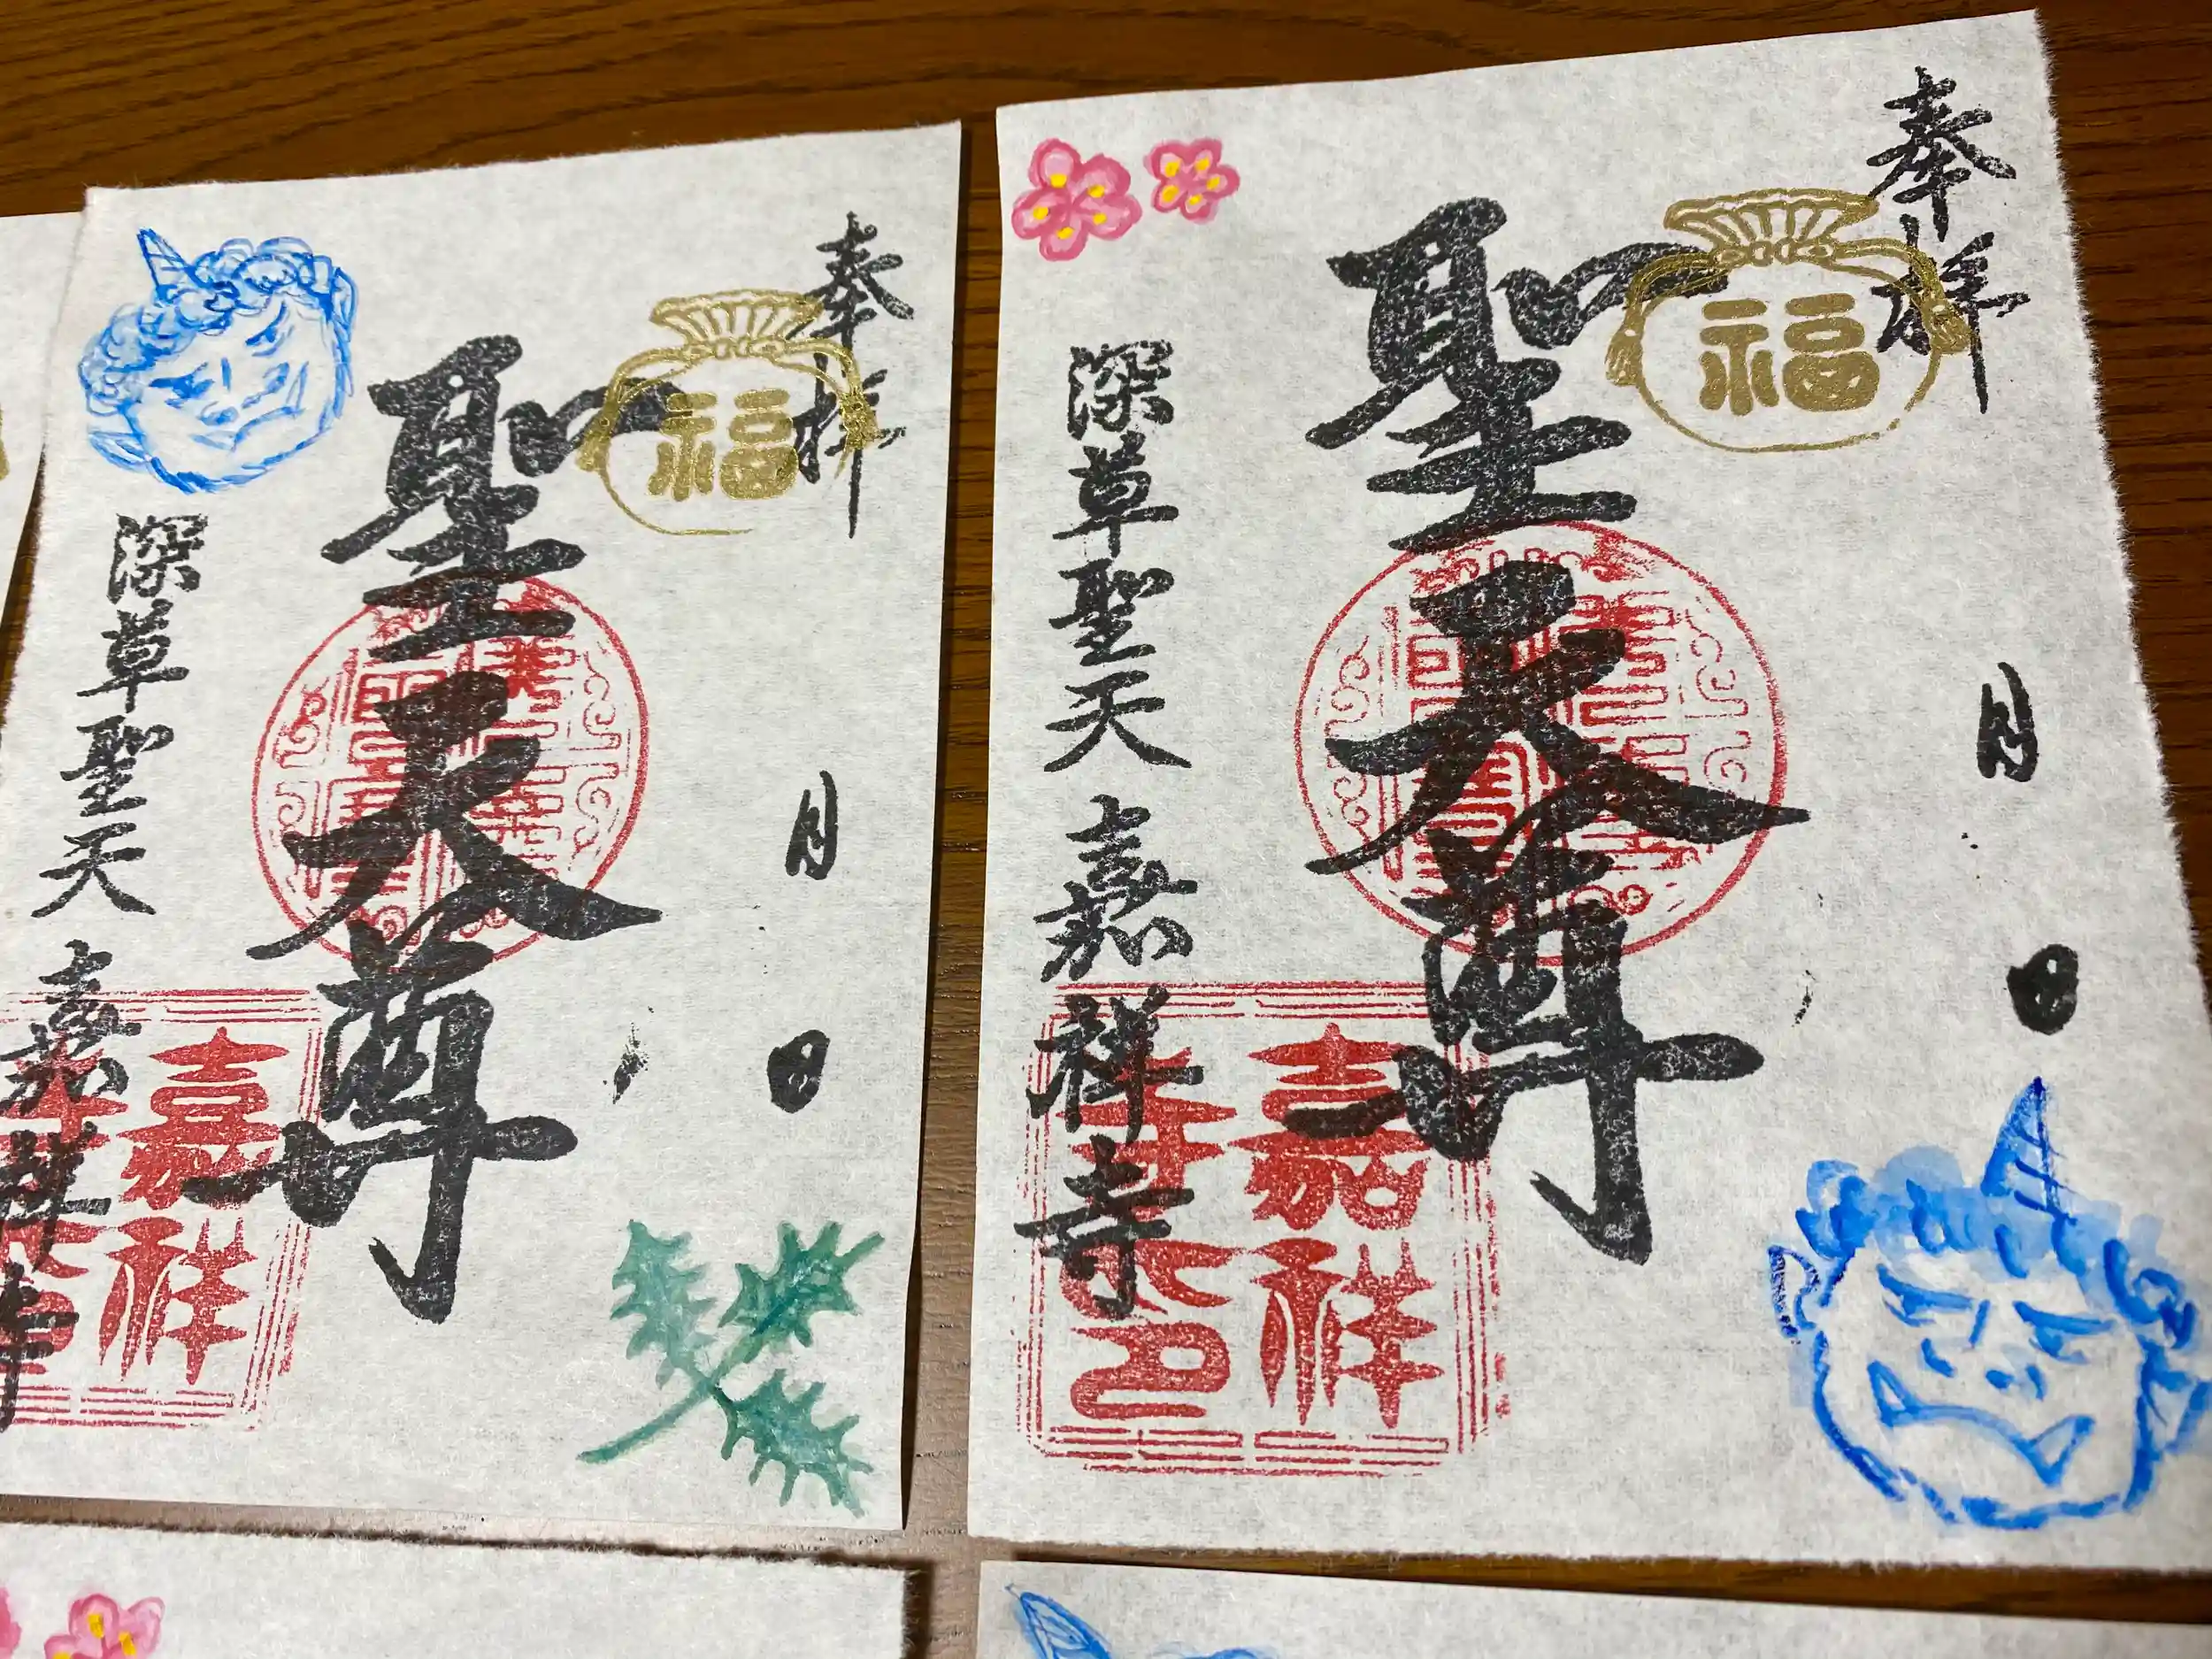 奉拝
福
聖天尊
月 日
深草聖天 嘉祥寺
嘉祥寺印
奉拝
福
聖天尊
月 日
深草聖天 嘉祥寺
嘉祥